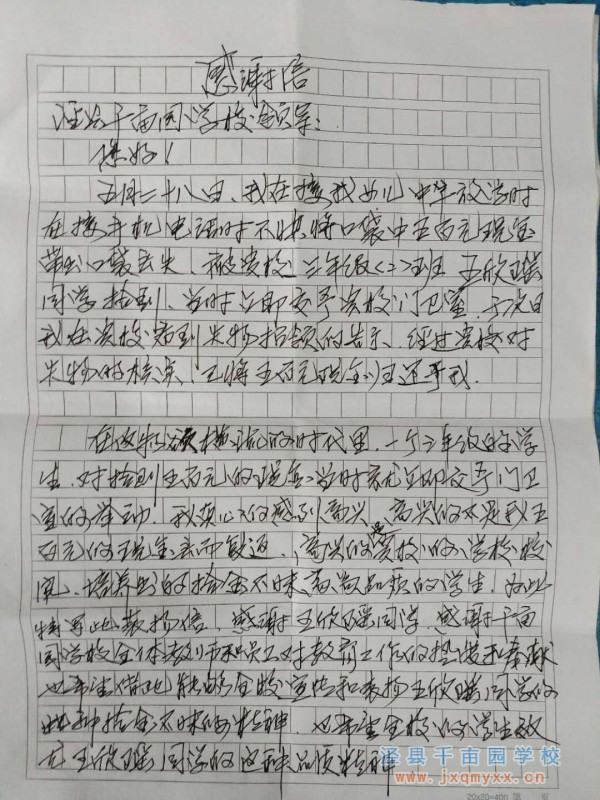 感谢信
泾县千亩园学校领导：
您好！
五月二十八日，我在接我女儿中午放学时
在接手机电话时不慎将口袋中五百元现金
带出口袋丢失，被贵校三年级<二>班王欣瑶
同学拾到，当时立即交予贵校门卫室，于次日
我在贵校看到失物招领的告示，经过贵校对
失物的核实，已将五百元现金归还予我。
在这物欲横流的时代里，一个三年级的小学
生，对拾到五百元的现金当时立即交予门卫
室的举动，我真心的感到高兴，高兴的不是我五
百元的现金去而复返，高兴的是贵校的学校校
风，培养出的拾金不昧高尚品质的学生，为此
特写此表扬信，感谢王欣瑶同学，感谢千亩
园学校全体教师和员工对教育工作的热忱和奉献
也希望借此能够全校宣传和表扬王欣瑶同学的
此种拾金不昧的精神，也希望全校的学生效
仿王欣瑶同学的这种品质精神
泾县千亩园学校
www.jxqmyxx.cn
20x20=400 第 页